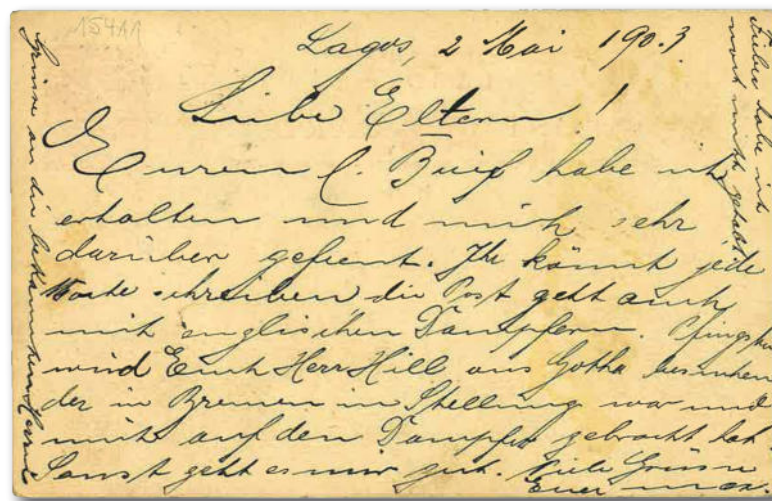 15411
Lagos, 2 Mai 1903
Liebe Eltern!
Euren l. Brief habe ich
erhalten und mich sehr
darüber gefreut. Ihr könnt jede
Woche schreiben die Post geht auch
mit englischen Dampfern. Pfingsten
wird Euch Herr Hill aus Gotha besuchen
der in Bremen in Stellung war und
mich auf den Dampfer gebracht hat.
Sonst geht es mir gut. Viele Grüsse
Euer Max.
Grüsse an die bekannten Herrn
Fieber habe ich
noch nicht gehabt